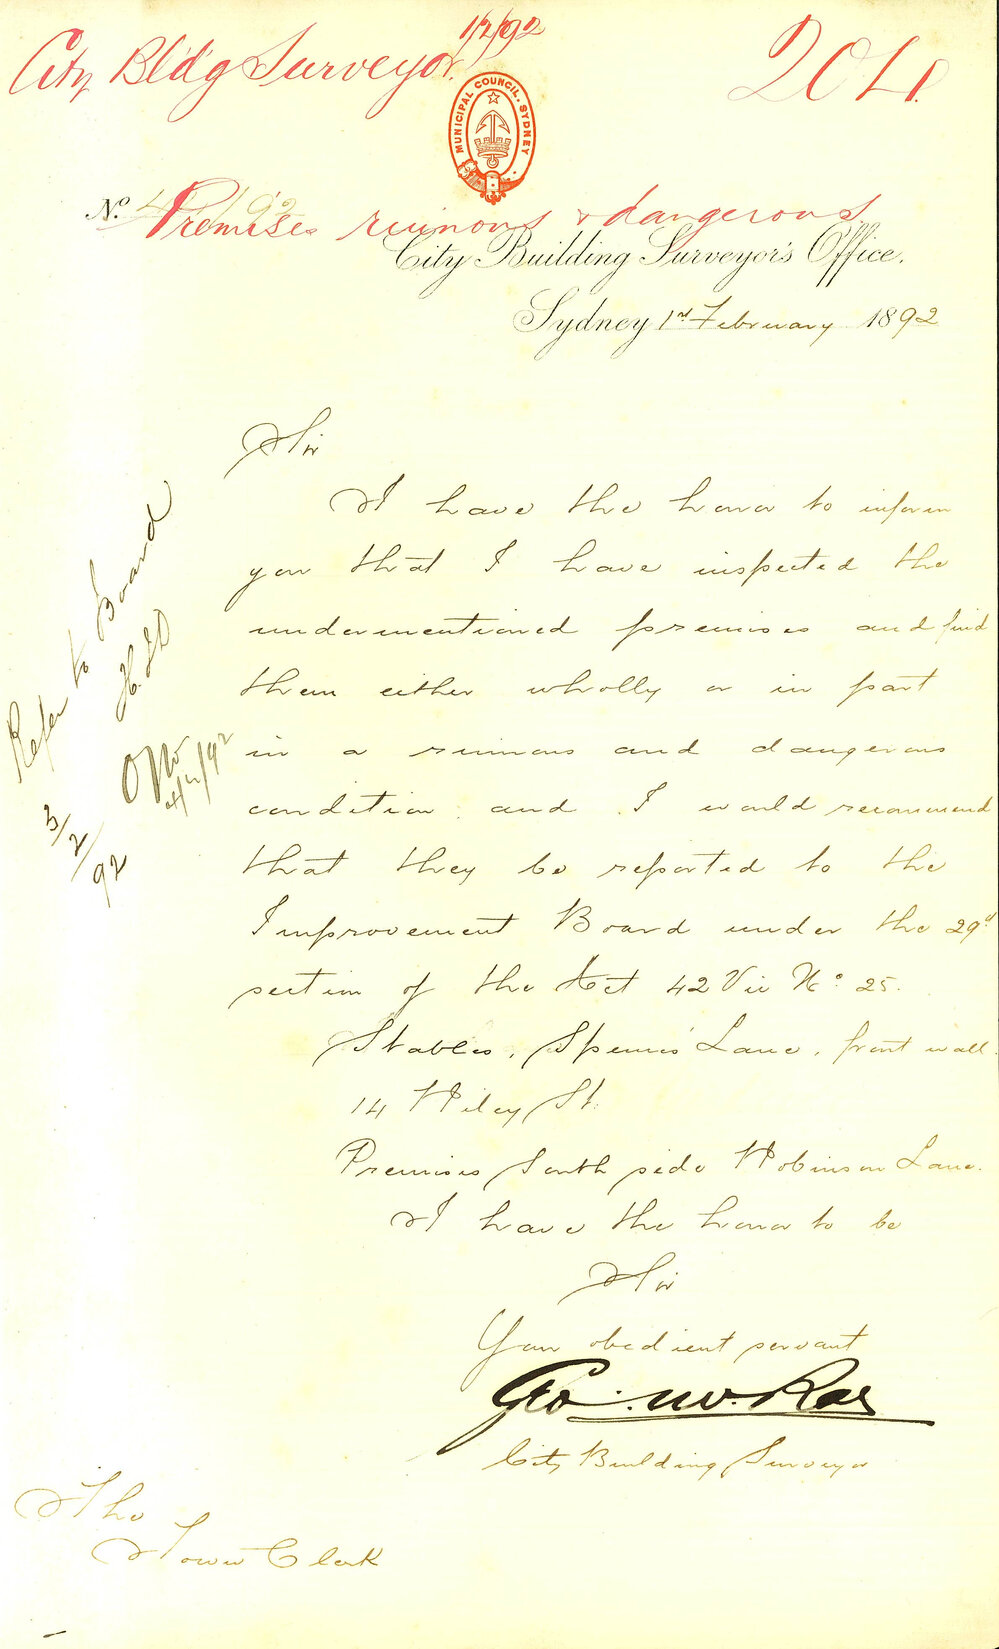 1/2/92
City Bldg Surveyor. 204
MUNICIPAL COUNCIL. SYDNEY
No.
Premises ruinous & dangerous
City Building Surveyor's Office.
Sydney 1st February 1892
Sir
I have the honor to inform
you that I have inspected the
undermentioned premises and find
them either wholly or in part
in a ruinous and dangerous
condition and I would recommend
that they be reported to the
Improvement Board under the 29th
section of the Act 42 Vic No. 25.
Stables, Lane, front wall.
14 St.
Premises South side Robinson Lane.
I have the honor to be
Sir
Your obedient servant
Geo. McRae
City Building Surveyor
The
Town Clerk
Refer to Board
3/2/92